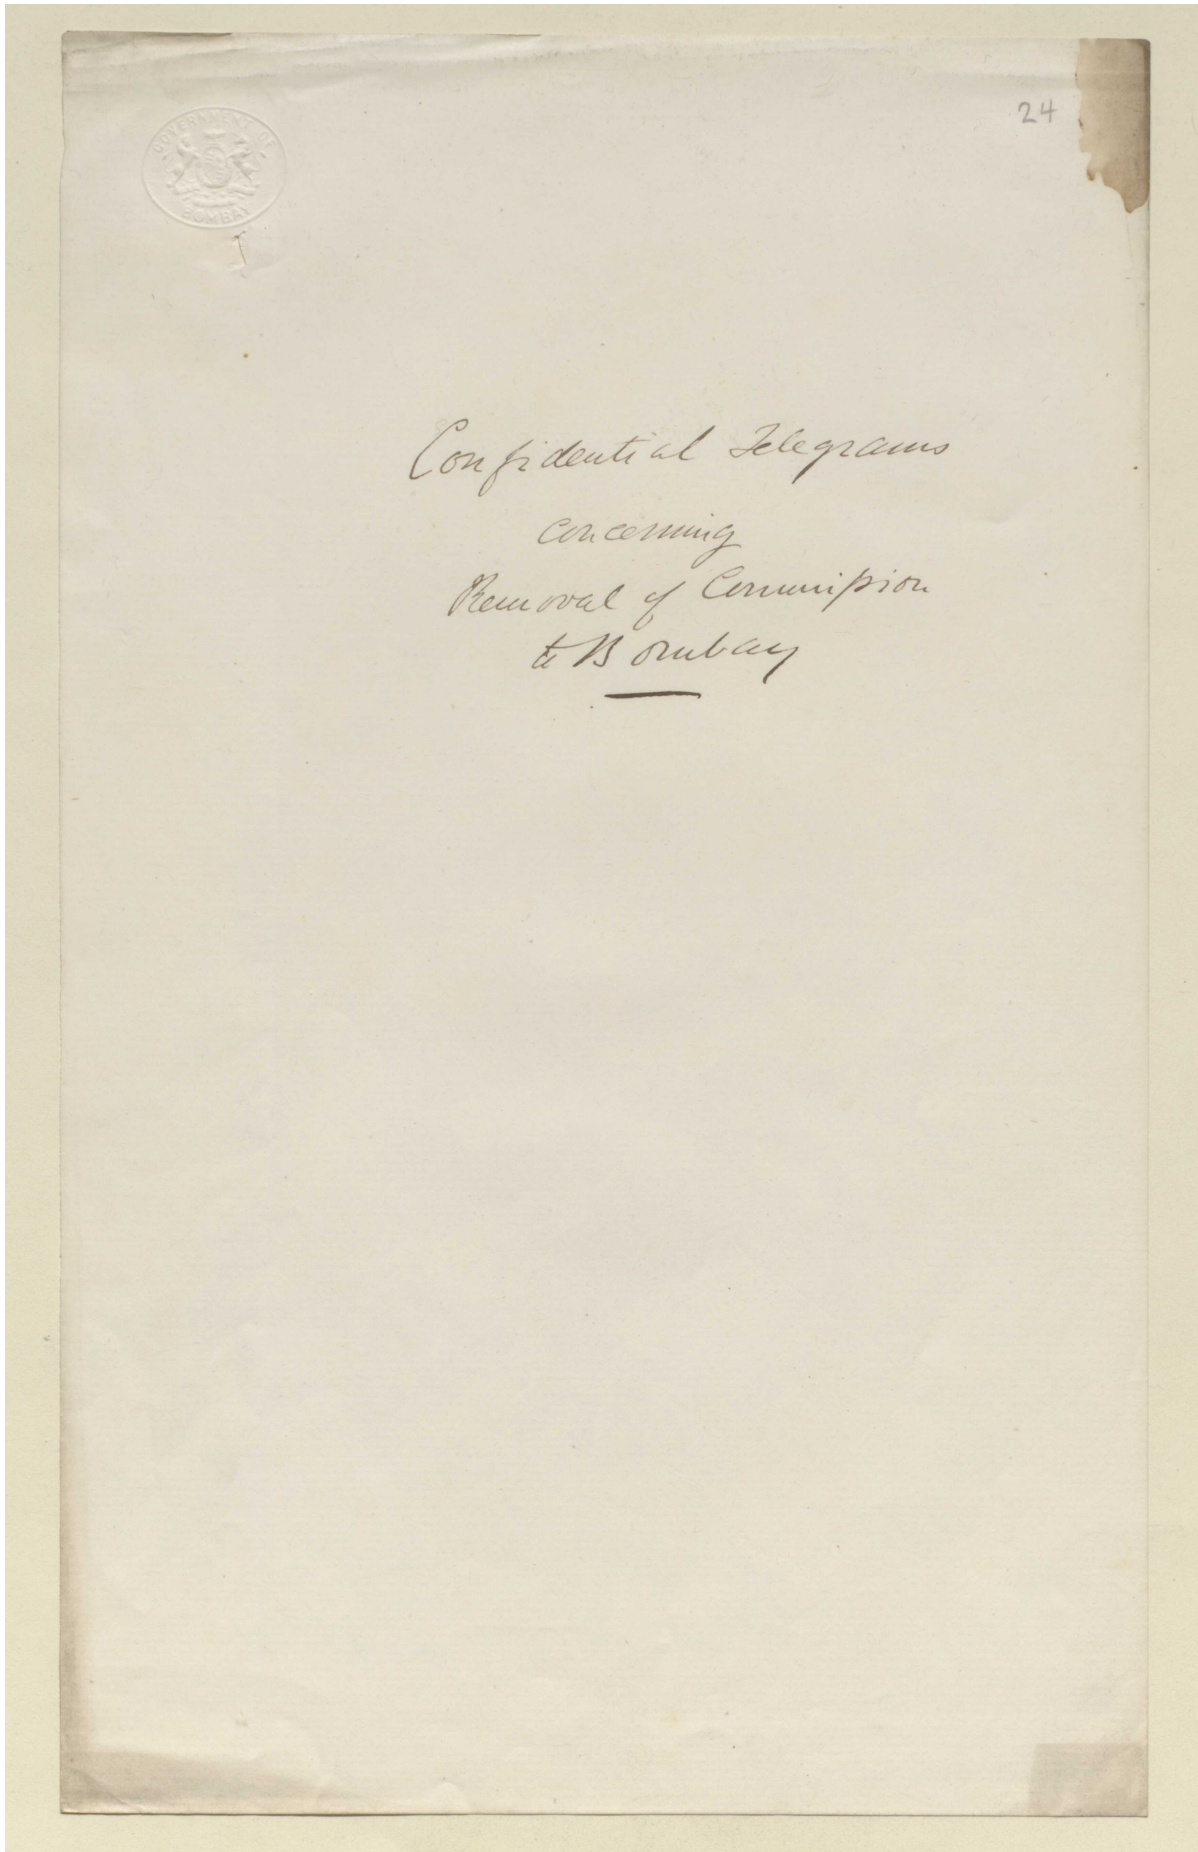 GOVERNMENT OF
BOMBAY
24
Confidential Telegrams
concerning
Removal of Commission
to Bombay